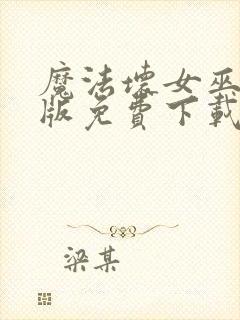 魔法坏女巫
版免費下載
梁某